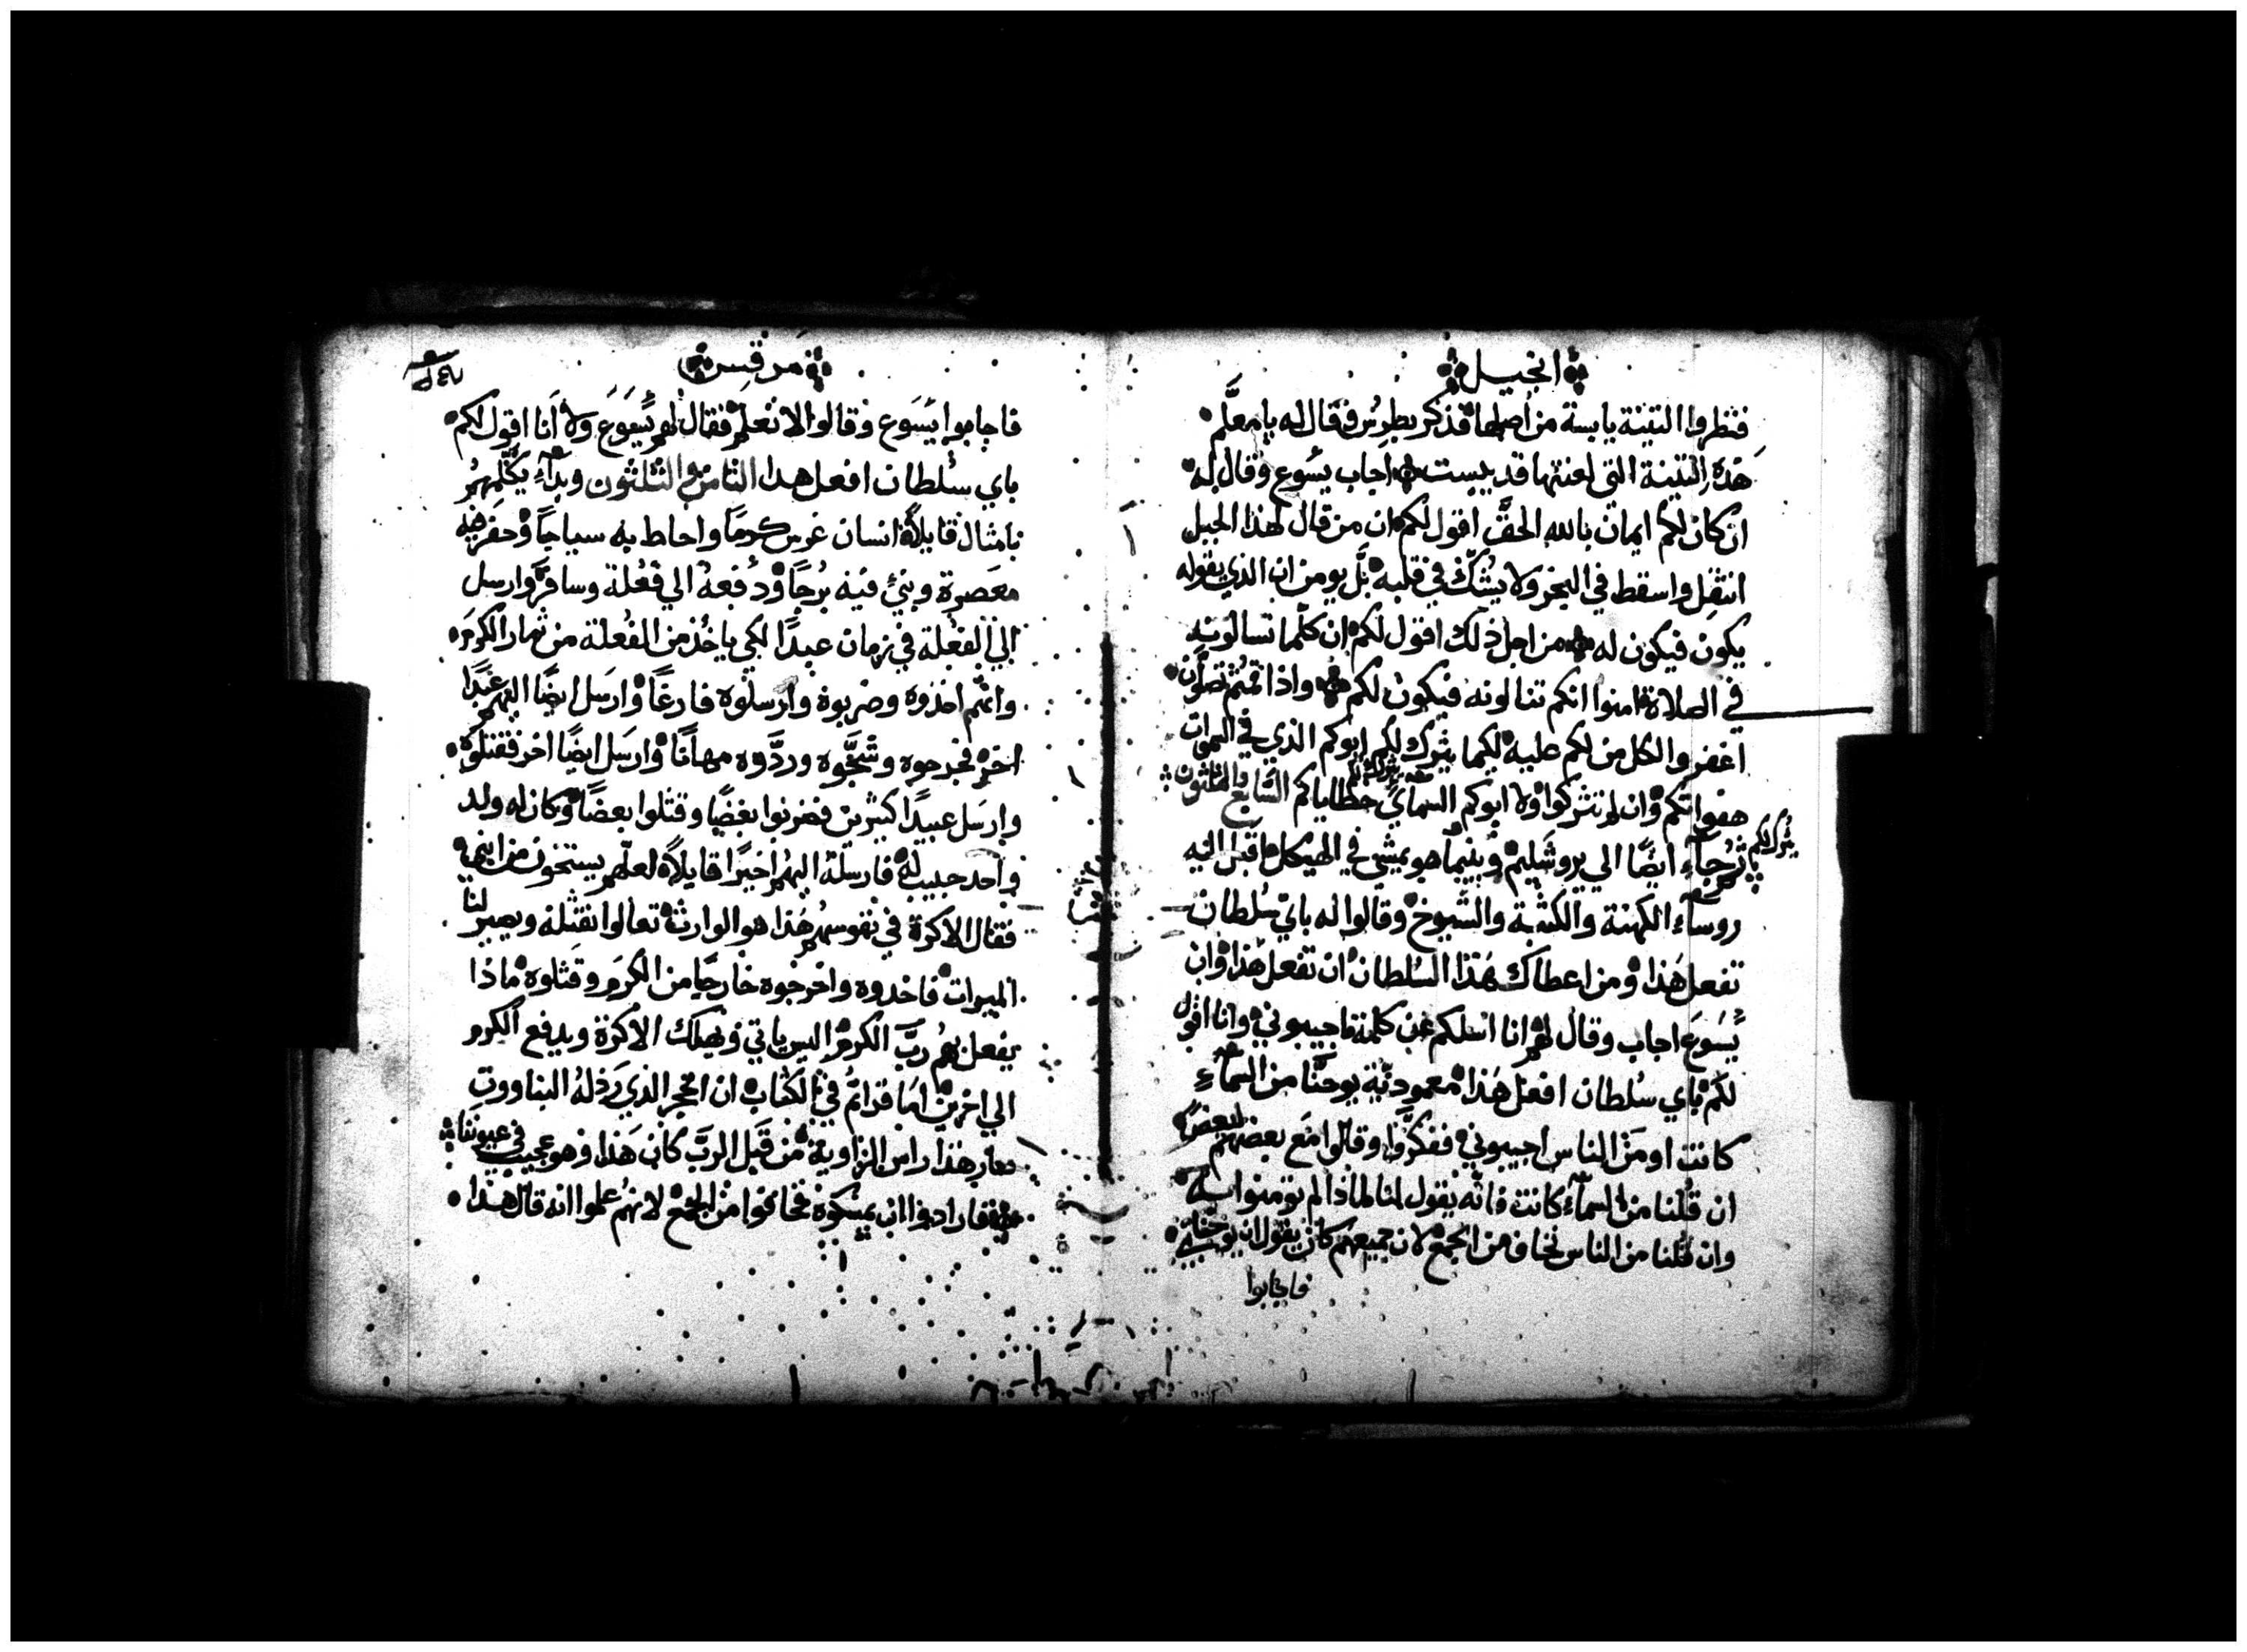 انجيل
فنظروا التينة يابسة من اصلها فذكر بطرس فقال له يا معلم
هذه التينة التي لعنتها قد يبست اجاب يسوع وقال له
ان كان لكم ايمان بالله الحق اقول لكم ان من قال لهذا الجبل
انتقل واسقط في البحر ولا يشك في قلبه بل يومن ان الذي يقوله
يكون فيكون له من اجل ذلك اقول لكم ان كلما تسالونه
في الصلاة امنوا انكم تنالونه فيكون لكم واذا قمتم تصلون
اغفروا لكل من لكم عليه لكيما يترك لكم ابوكم الذي في السموات
هفواتكم وان لم تتركوا ولا ابوكم السماي يترك لكم خطاياكم السابع والثلثون
يترك لكم
ثم جاء ايضا الي يروشليم وبينما هو يمشي في الهيكل اقبل اليه
روساء الكهنة والكتبة والشيوخ وقالوا له باي سلطان
تفعل هذا ومن اعطاك هذا السلطان ان تفعل هذا وان
يسوع اجاب وقال لهم انا اسلكم عن كلمة فاجيبوني وانا اقول
لكم باي سلطان افعل هذا معمودية يوحنا من السماء
كانت او من الناس اجيبوني ففكروا وقالوا مع بعضهم لبعض
ان قلنا من السماء كانت فانه يقول لنا لماذا لم تومنوا به
وان قلنا من الناس نخاف من الجمع لان جميعهم كان يقول ان يوحنا نبي
فاجابوا
مرقس
فاجابوا يسوع وقالوا لا نعلم فقال لهم يسوع ولا انا اقول لكم
باي سلطان افعل هدا الثامن والثلثون وبداء يكلمهم
بامثال قايلا انسان غرس كرما واحاط به سياجا وحفر فيه
معصرة وبني فيه برجا ودفعه الي فعلة وسافر وارسل
الي الفعلة في زمان عبدا لكي ياخذ من الفعلة من ثمار الكرم
وانهم اخذوه وضربوه وارسلوه فارغا وارسل ايضا اليهم عبدا
اخر فجرحوه وشجوه وردوه مهانا وارسل ايضا اخر فقتلوه
وارسل عبيدا كثيرين فضربوا بعضا وقتلوا بعضا وكان له ولد
واحد حبيب له فارسله اليهم اخيرا قايلا لعلهم يستحون من ابني
فقال الاكرة في نفوسهم هذا هو الوارث تعالوا نقتله ويصير لنا
الميراث فاخدوه واخرجوه خارجا من الكرم وقتلوه ماذا
يفعل بهم رب الكرم اليس ياتي ويهلك الاكرة ويدفع الكرم
الي اخرين اما قراتم في الكتاب ان الحجر الذي رذله البناوون
صار هذا راس الزاوية من قبل الرب كان هذا وهو عجيب في عيوننا
فارادوا ان يمسكوه فخافوا من الجمع لانهم علموا انه قال هذا